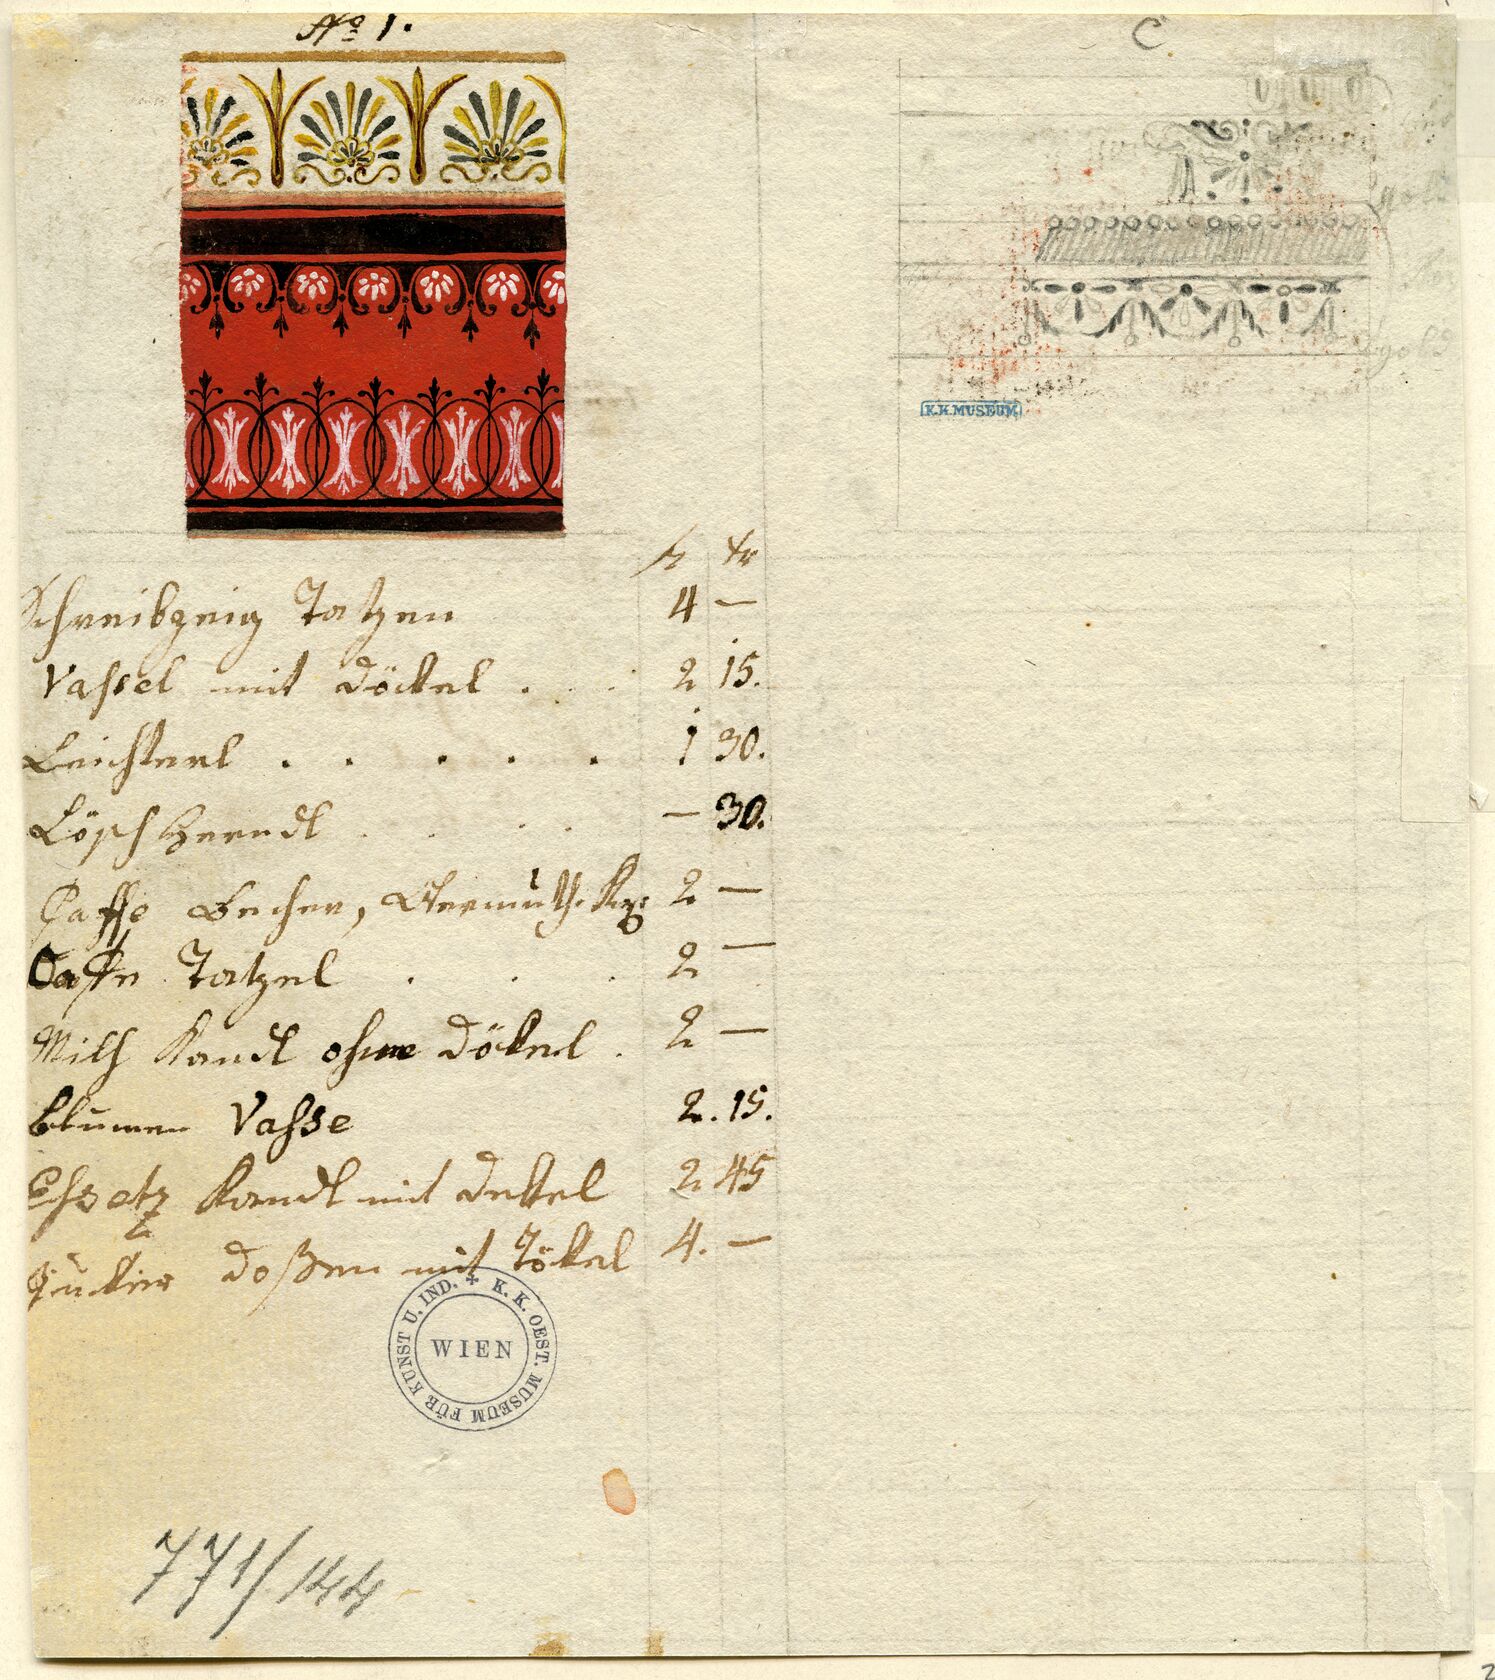 No 1.
C
K.K. MUSEUM
fl xr
Schreibzeig Tatzen 4 —
Vassel mit Döckel . . . 2 15.
Leichterl . . . . . 1 30.
Löschherndl . . . . — 30.
Caffe Becher, Wermuth. 2 —
Caffe Tatzel . . . 2 —
Milch Kandl ohne Döckel . 2 —
Blumen Vasse 2. 15.
Essetz Kandl mit Deckel 2 45
Zucker Doßen mit Töckel 4. —
K. K. OEST. MUSEUM FÜR KUNST U. IND.
WIEN
771/144